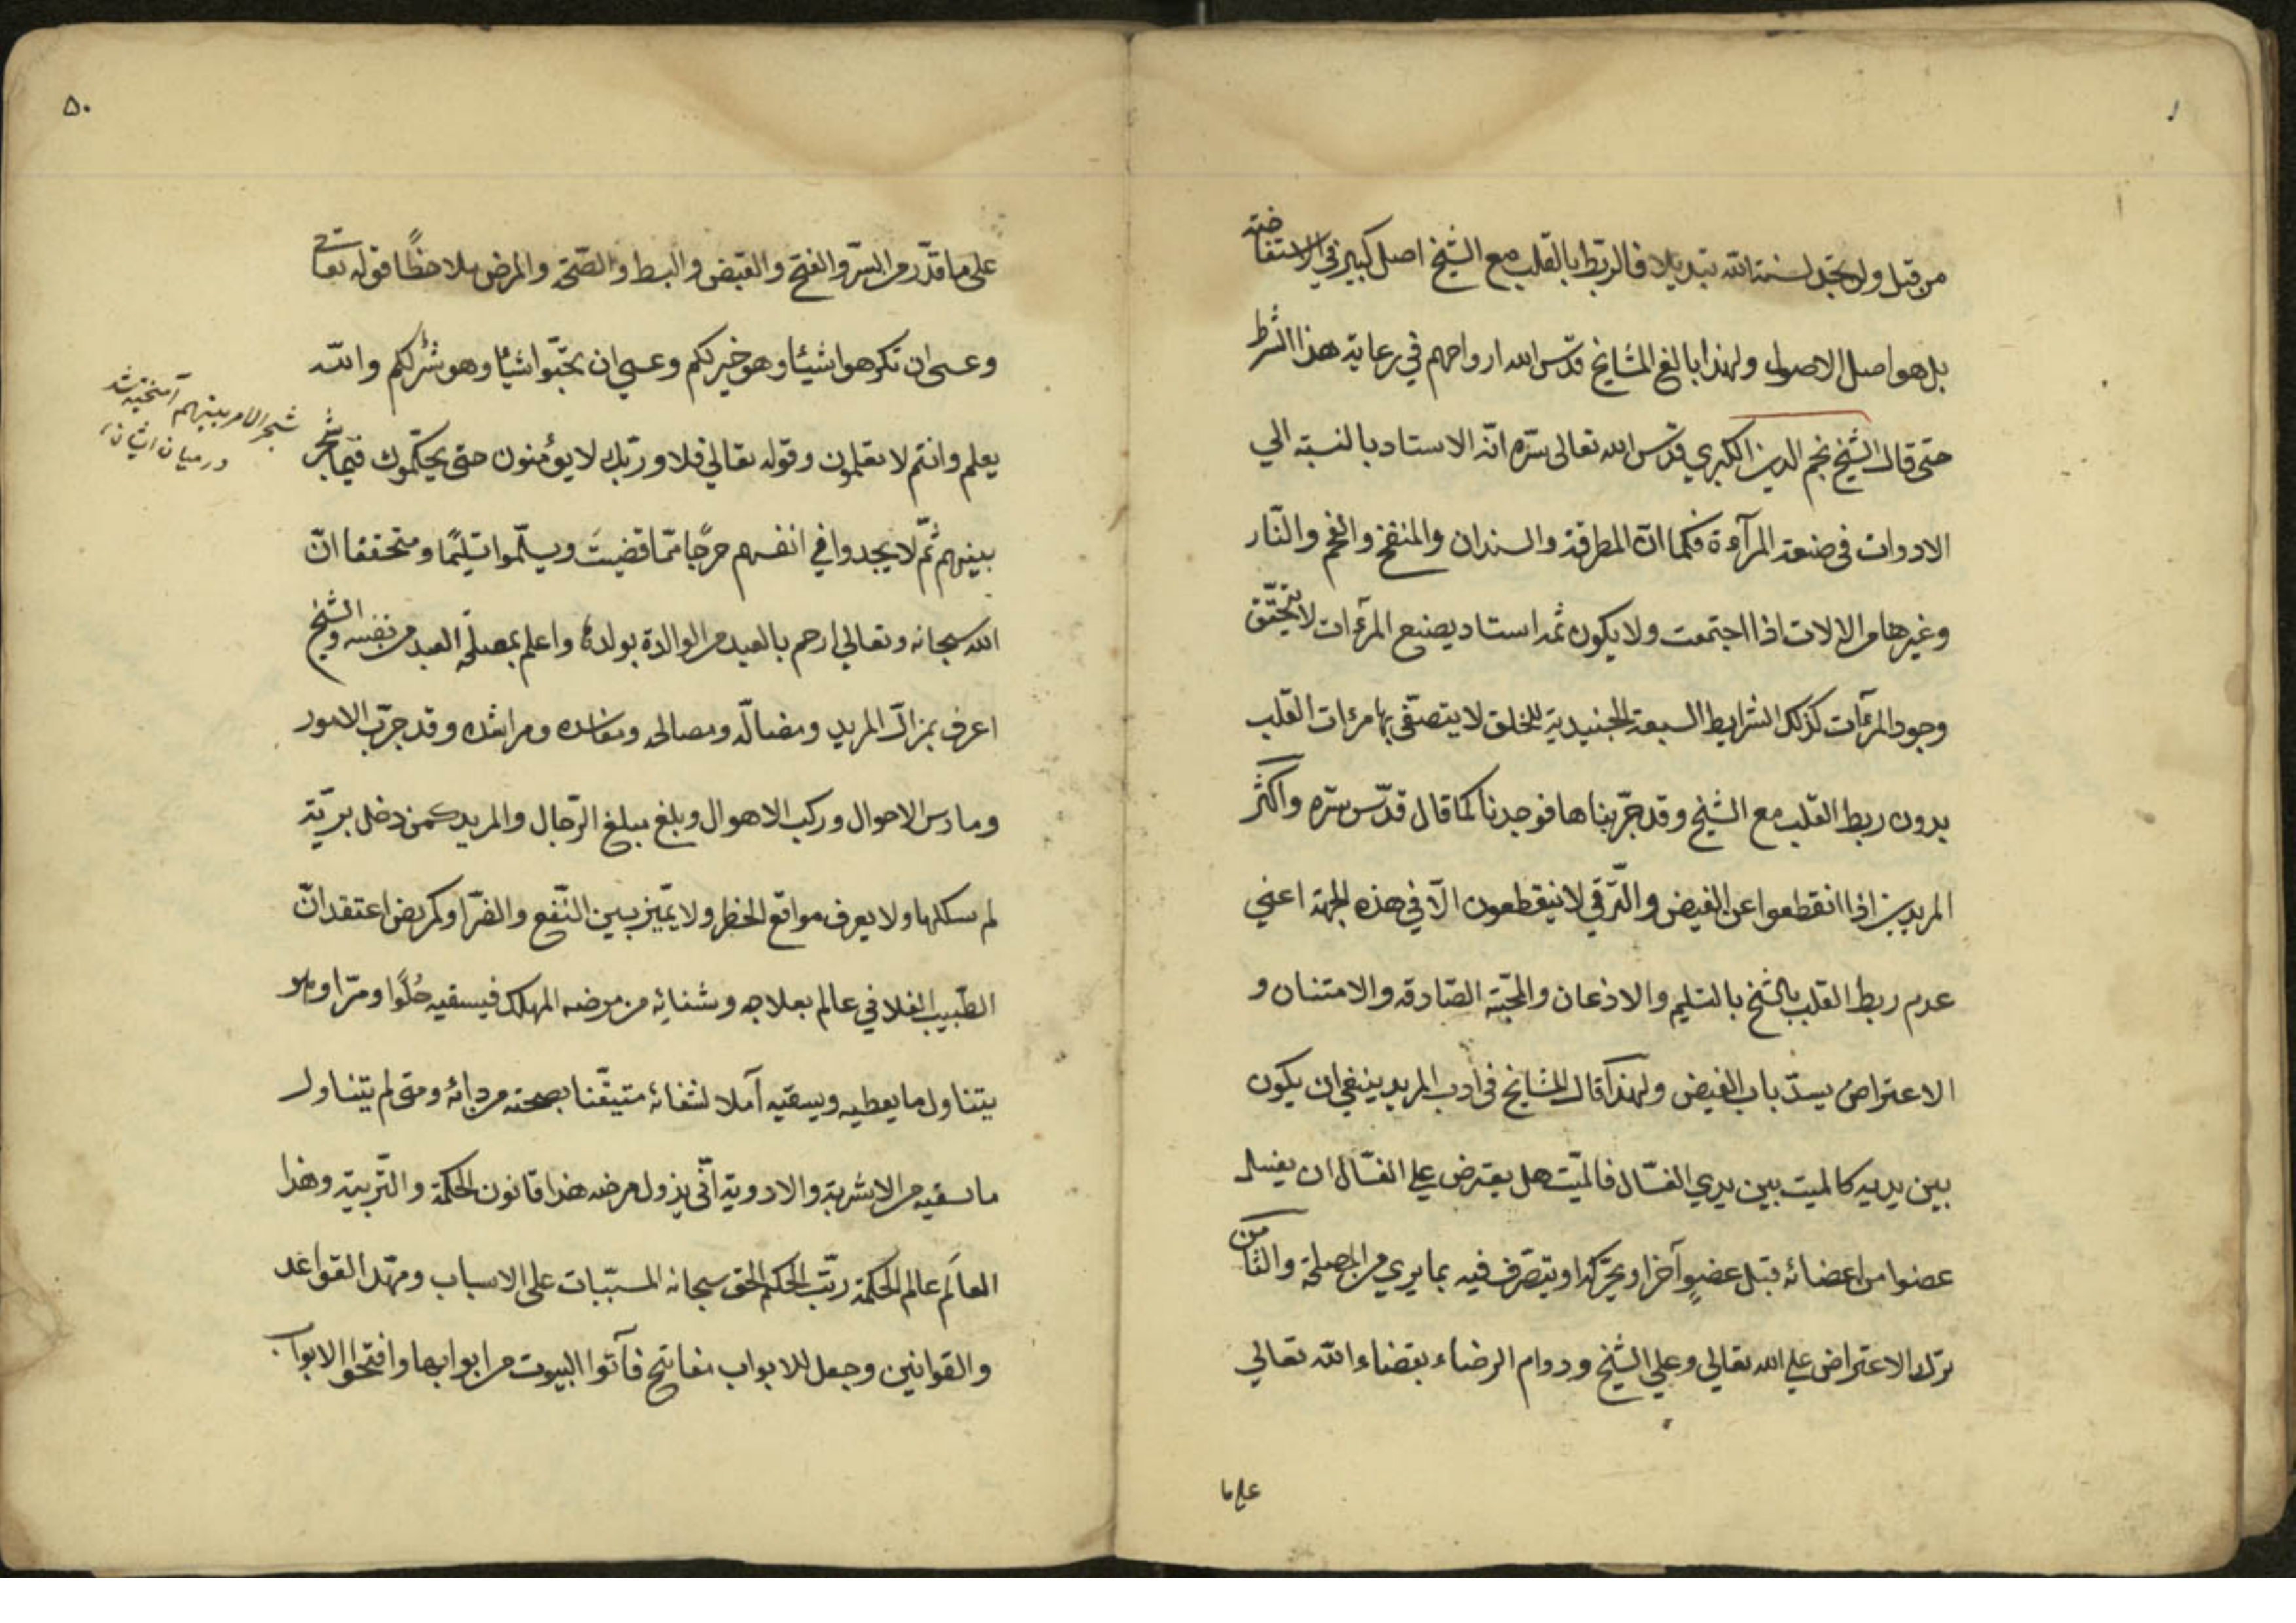 من قبل ولن تجد لسنة الله تبديلا فالربط بالقلب مع الشيخ اصل كبير في الاستفاضة
بل هو اصل الاصول ولهذا بالغ المشايخ قدّس الله ارواحهم في رعاية هذا الشرط
حتى قال الشيخ نجم الدين الكبري قدّس الله تعالى سرّه انّه الاستاد بالنسبة الي
الادوات في صنعة المرآءة فكما انّ المطرقة والسندان والمنفخ والفحم والنّار
وغيرها من الالات اذا اجتمعت ولا يكون ثمه استاد يصنع المرءات لا يتحقّق
وجود المرءات كذلك الشرايط السبعة الجنيدية للخلق لا يتصفّى بها مرءات القلب
بدون ربط القلب مع الشيخ وقد جرّبناها فوجدنا كما قال قدّس سرّه واكثر
المريدين اذا انقطعوا عن الفيض والتّرقي لا ينقطعون الّا في هذه الجهة اعني
عدم ربط القلب بالشيخ بالتسليم والاذعان والمحبّة الصّادقه والامتنان و
الاعتراض يسدّ باب الفيض ولهذا قال المشايخ في ادب المريد ينبغي ان يكون
بين يديه كالميت بين يدي الغسّال فالميّت هل يعترض علي الغسّال ان يغسل
عضوا من اعضائه قبل عضوٍ آخر او يحرّكه او يتصرّف فيه بما يري من المصلحة والثامن
ترك الاعتراض علي الله تعالي وعلي الشيخ ودوام الرضاء بقضاء الله تعالي
علي ما
۵۰
على ما قدّر من السرّ والفتح والقبض والبسط والصّحّة والمرض ملاحظًا قوله تعالى
وعسى ان تكرهوا شيئا وهو خير لكم وعسى ان تحبّوا شيئا وهو شرّ لكم والله
يعلم وانتم لا تعلمون وقوله تعالي فلا وربّك لا يؤمنون حتى يحكّموك فيما شجر
بينهم ثمّ لا يجدوا في انفسهم حرجًا ممّا قضيتَ ويسلّموا تسليمًا ومتحققا انّ
الله سبحانه وتعالي ارحم بالعبد من الوالدة بولدها واعلم بمصلحة العبد من نفسه والشيخ
اعرف بمزالّ المريد ومضالّه ومصالحه ومفاسده ومراشده وقد جرّب الامور
ومارس الاحوال وركب الاهوال وبلغ مبلغ الرّجال والمريد كمن دخل بريّة
لم يسلكها ولا يعرف مواقع الخطر ولا يميّز بين النّفع والضرّ او كمريض اعتقد انّ
الطّبيب الفلاني عالم بعلاجه وشفائه من مرضه المهلك فيسقيه حُلوًا ومرّا وهو
يتناول ما يعطيه ويسقيه آملا لشفائه متيقّنا بصحته من دائه ومتى لم يتناول
ما سقيه من الاشربة والادوية انّى يزول مرضه هذا قانون الحكمة والتّربية وهذا
العالَم عالم الحكمة رتّب الحكم الحق سبحانه المسبّبات على الاسباب ومهّد القواعد
والقوانين وجعل للابواب مفاتيح فآتوا البيوت من ابوابها وافتحوا الابواب
شجر الامر بينهم آميخته شد
در ميان ايشان